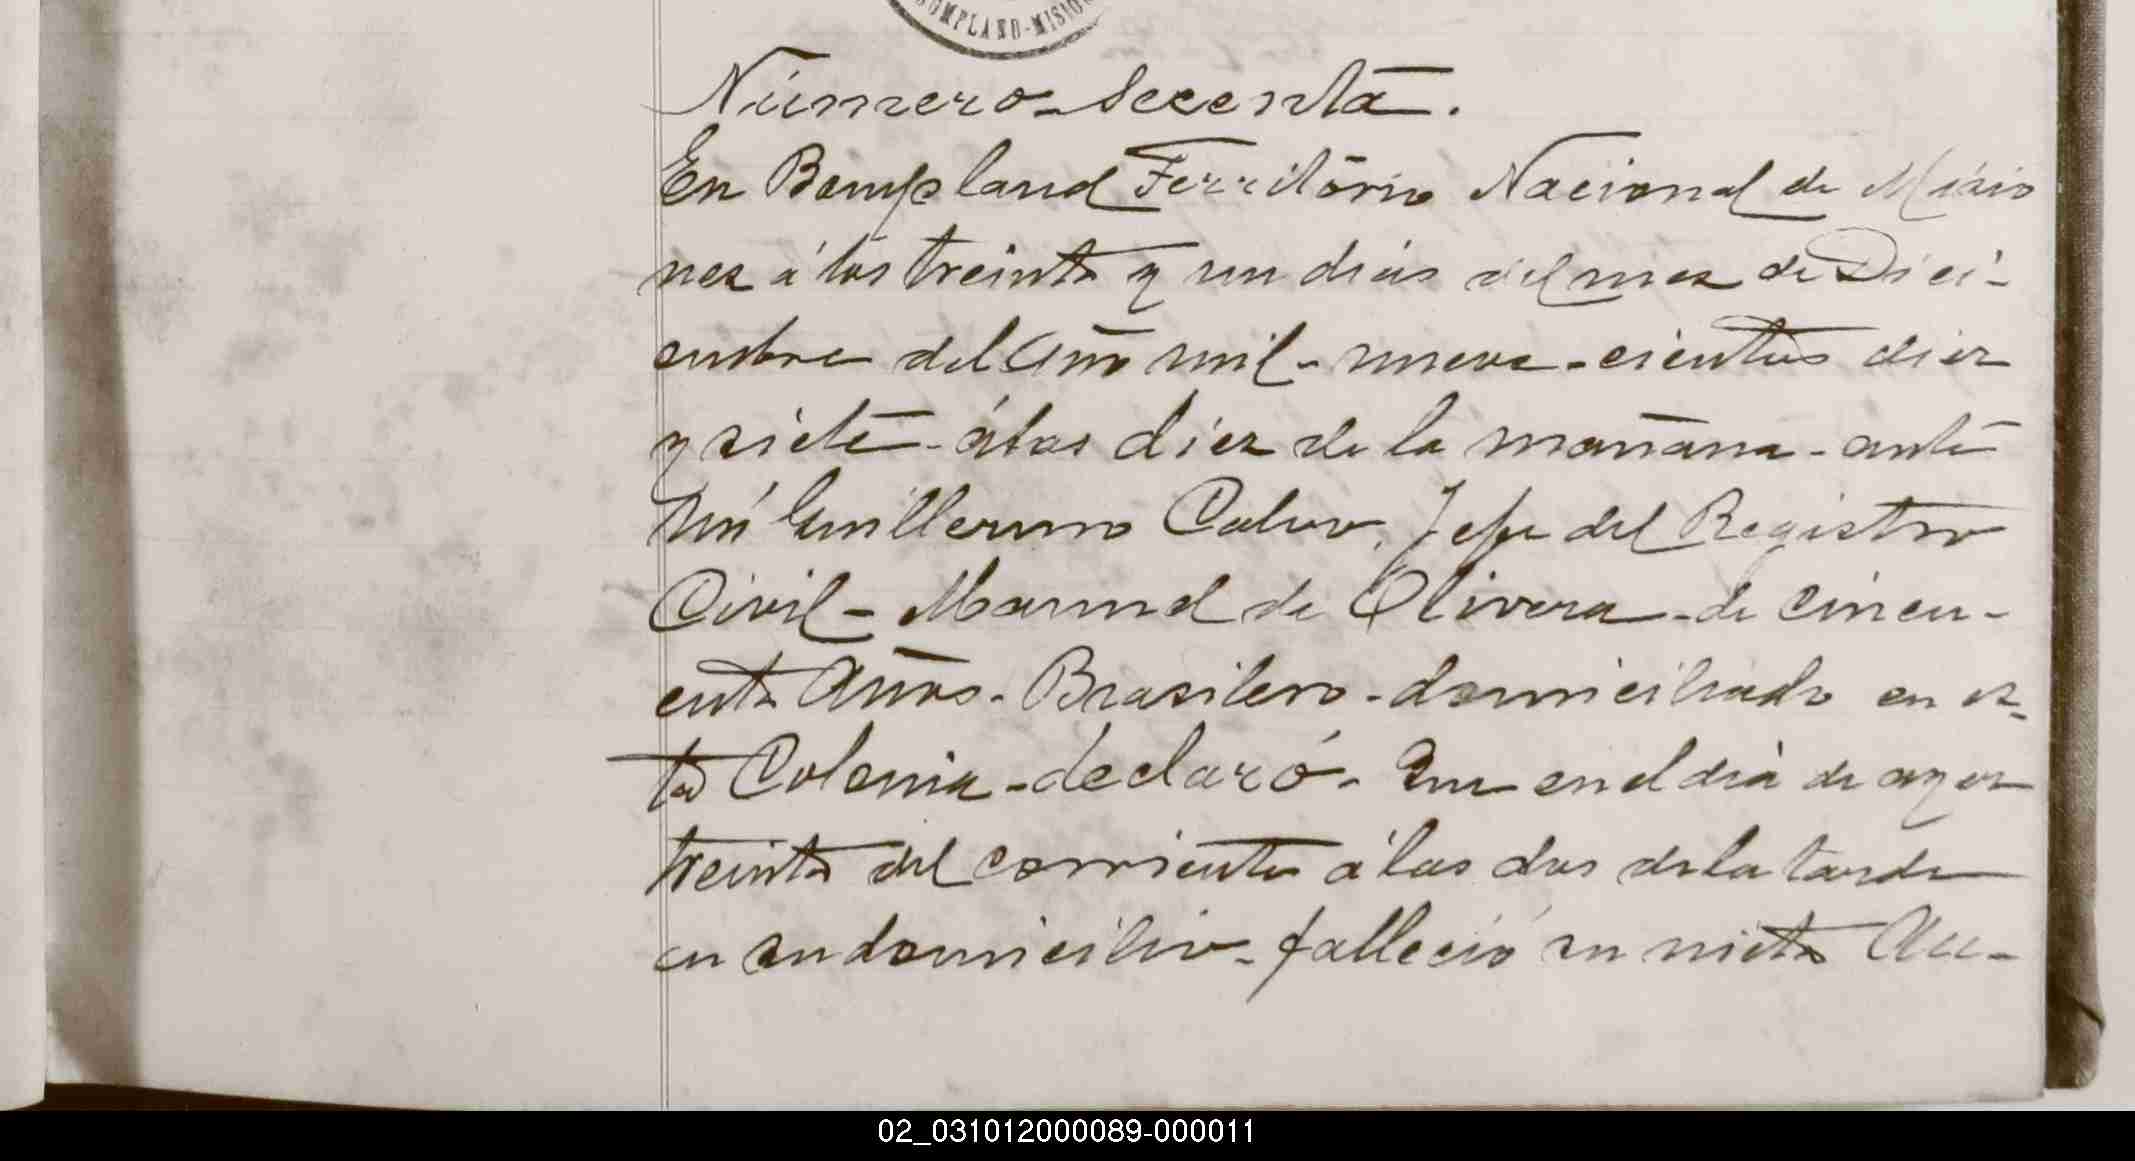 BOMPLAND-MISIO
Número Secenta.
En Bompland Territorio Nacional de Misio
nes á los treinta y un dias del mes de Dici-
embre del Año mil-nueve-cientos diez
y siete-álas diez de la mañana-ante
Mi Guillermo Calvo, Jefe del Registro
Civil-Manuel de Olivera-de cincu-
enta Años-Brasilero-domiciliado en es-
ta Colonia-declaró-Que en el dia de ayer
treinta del corriente á las dos dela tarde
en su domicilio-falleció su nieta Au-
02_031012000089-000011